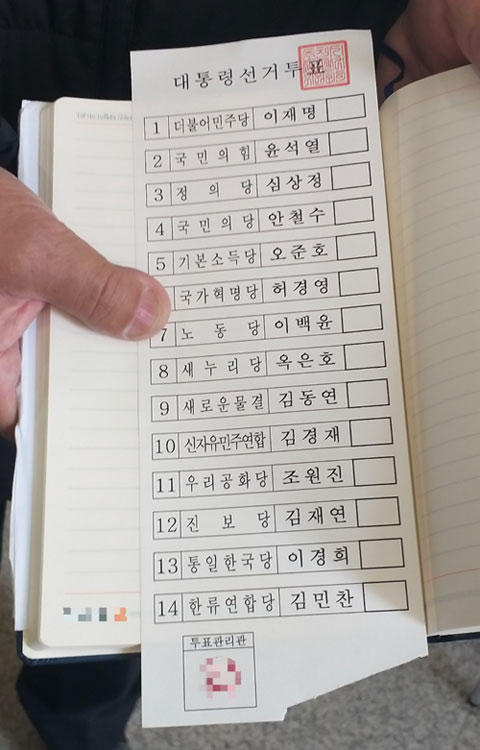 대통령선거투표
1 더불어민주당 이재명
2 국민의힘 윤석열
3 정의당 심상정
4 국민의당 안철수
5 기본소득당 오준호
국가혁명당 허경영
7 노동당 이백윤
8 새누리당 옥은호
9 새로운물결 김동연
10 신자유민주연합 김경재
11 우리공화당 조원진
12 진보당 김재연
13 통일한국당 이경희
14 한류연합당 김민찬
투표관리관